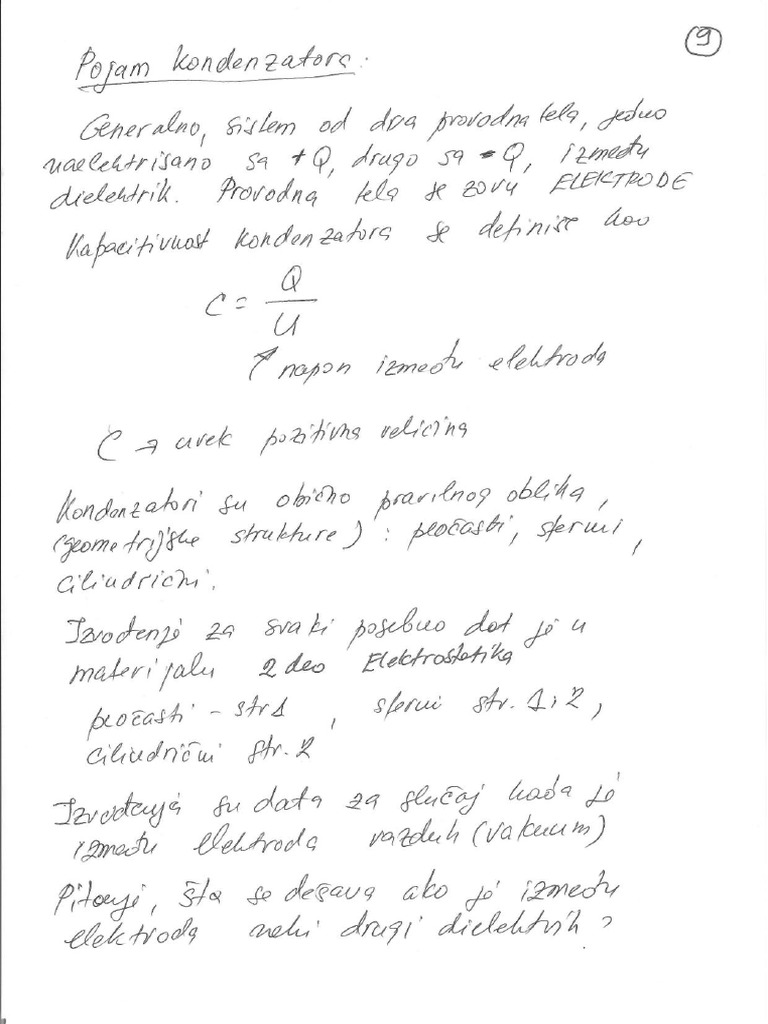 9
Pojam kondenzatora:
Generalno, sistem od dva provodna tela, jedno
naelektrisano sa +Q, drugo sa -Q, između
dielektrik. Provodna tela se zovu ELEKTRODE
Kapacitivnost kondenzatora se definiše kao
C = Q
U
↑ napon između elektroda
C → uvek pozitivna veličina
Kondenzatori su obično pravilnog oblika,
(geometrijske strukture) : pločasti, sferni,
cilindrični.
Izvođenje za svaki posebno dat je u
materijalu 2 deo Elektrostatika
pločasti - str 1, sferni str. 1 i 2,
cilindrični str. 2
Izvođenja su data za slučaj kada je
između elektroda vazduh (vakuum)
Pitanje, šta se dešava ako je između
elektroda neki drugi dielektrik?